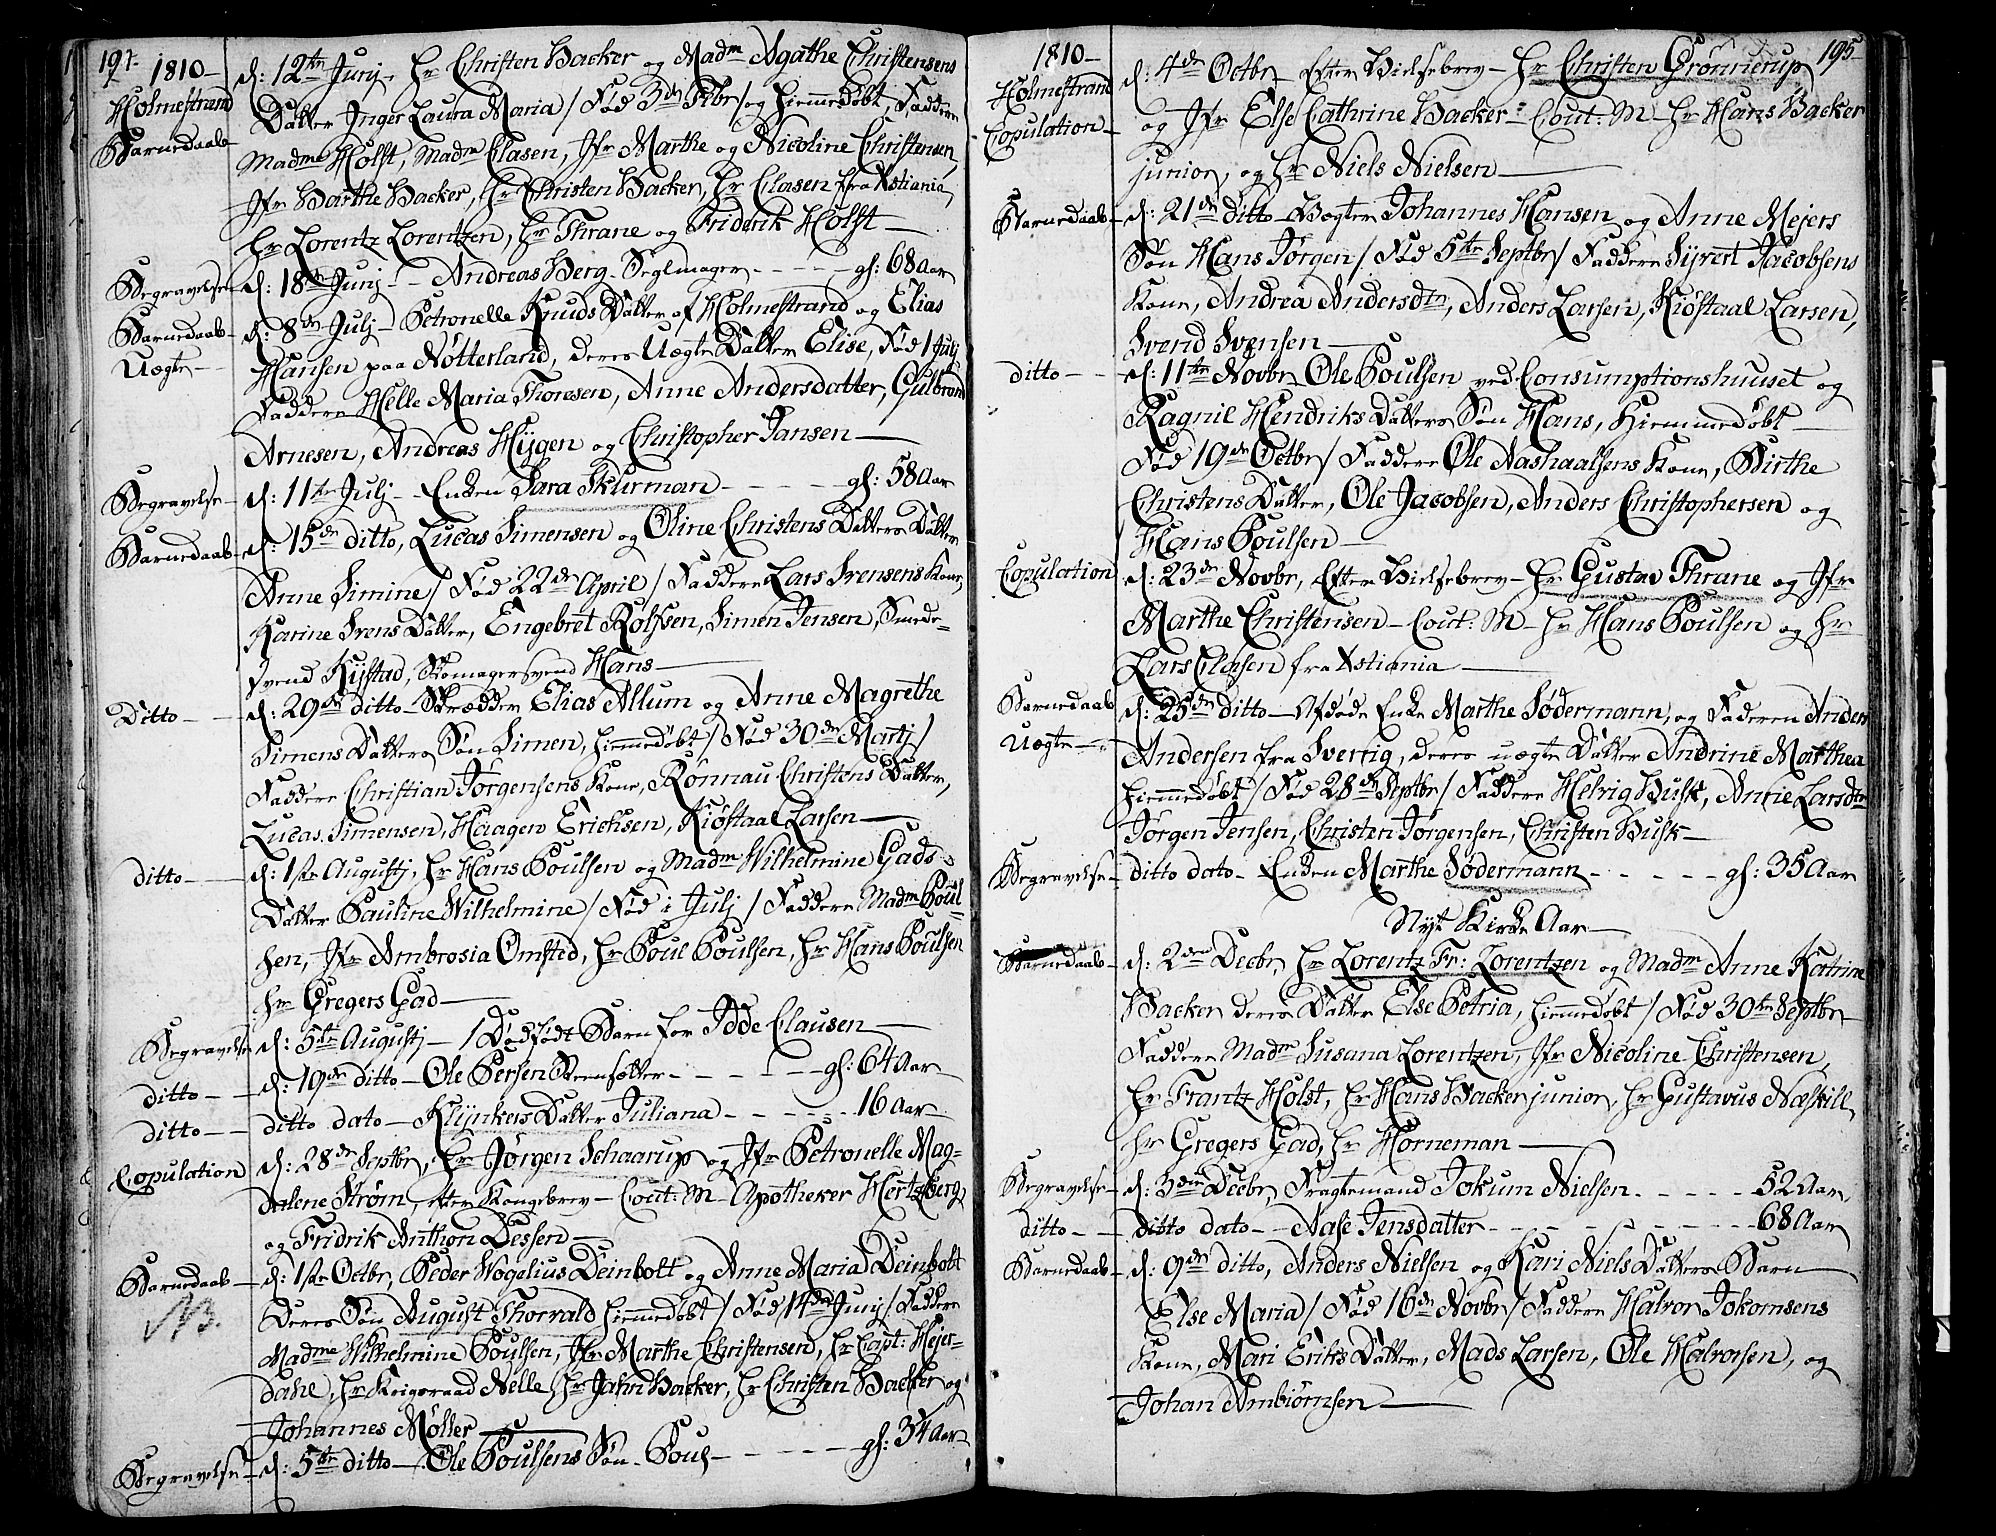 194.
1810 –
Holmestrand
Barnedaab – d: 12te Junj – Hr Christen Backer og Madm Agathe Christensens
Datter Inger Laura Maria / Fød 3de Febr / og hiemmedøbt, Faddere
Madme Holst, Madm Clasen, Jfr Marthe og Nicoline Christensen,
Jfr Barthe Backer, Hr Christen Backer, Hr Clasen fra Xstiania,
Hr Lorentz Lorentzen, Hr Thrane og Friderik Holst –
Begravelse – d: 18de Junj – Andreas Berg Seglmager – – – gl: 68 Aar
Barnedaab – d: 8de Julj – Petronelle Knuds Datter af Holmestrand og Elias
Uægte – Hansen paa Nøtterland, deres Uægte Datter Elise, Fød 1 Julj
Faddere Helle Maria Thoresen, Anne Andersdatter, Gulbrand
Arnesen, Andreas Hygen og Christopher Jansen –
Begravelse – d: 11te Julj – Enken Sara Skurman – – – gl: 58 Aar
Barnedaab – d: 15de ditto, Lucas Simensen og Oline Christens Datters Datter
Anne Simine / Fød 22de April / Faddere Lars Svensens Kone,
Karine Svens Datter, Engebret Rolfsen, Simen Jensen, Smede-
svend Kystad, Skomagersvend Hans –
Ditto – d: 29de ditto – Skrædder Elias Allum og Anne Magrethe
Simens Datters Søn Simen, hiemmedøbt / Fød 30de Martj /
Faddere Christian Jørgensens Kone, Rønnau Christens Datter,
Lucas Simensen, Haagen Ericksen, Kiøstaal Larsen –
ditto – d: 1ste Augustj, Hr Hans Poulsen og Madm Wilhelmine Gads
Datter Pauline Wilhelmine / Fød i Julj / Faddere Madm Poul-
sen, Jfr Ambrosia Omsted, Hr Poul Poulsen, Hr Hans Poulsen
Hr Gregers Gad –
Begravelse d: 5te Augustj – 1 Dødfødt Barn for Idde Clausen –
ditto – d: 19de ditto – Ole Persen Steensætter – – – gl: 64 Aar
ditto – ditto dato – Klynkers Datter Juliana – – – 16 Aar
Copulation d: 28de Septbr, Hr Jørgen Schaarup og Jfr Petronelle Mag-
dalene Strøm, efter Kongebrev – Cout: M – Apotheker Hertzberg
og Fridrik Anthon Dessen –
Barnedaab – d: 1ste Octbr, Peder Wogelius Deinbolt og Anne Maria Deinbolt
NB. Deres Søn August Thorvald hiemmedøbt / Fød 14de Junj / Faddere
Madme Wilhelmine Poulsen, Jfr Marthe Christensen, Hr Capt: Mejer-
dahl, Hr Krigsraad Nelle, Hr Jahn Backer, Hr Christen Backer og
Johannes Møller
Begravelse – d: 5te ditto – Ole Poulsens Søn Poul – – – gl: 34 Aar
195
1810 –
Holmestrand
Copulation – d: 4de Octbr Efter Bielsebrev – Hr Christen Grønnerup
og Jfr Else Cathrine Backer – Cout: M – Hr Hans Backer
junior, og Hr Niels Nielsen –
Barnedaab – d: 21de ditto – Vægter Johannes Hansen og Anne Mejers
Søn Hans Jørgen / Fød 5te Septbr / Faddere Syvert Jacobsens
Kone, Andrea Andersdtr, Anders Larsen, Kiøstaal Larsen,
Svend Svensen –
ditto – d: 11te Novbr Ole Poulsen ved Consumptionshuuset og
Ragnil Hendriks Datters Søn Hans, hiemmedøbt –
Fød 19de Octbr / Faddere Ole Aashaalsens Kone, Birthe
Christens Datter, Ole Jacobsen, Anders Christophersen og
Hans Poulsen –
Copulation d: 23de Novbr, Efter Bielsebrev – Hr Gustav Thrane og Jfr
Marthe Christensen – Cout: M – Hr Hans Poulsen og Hr
Lars Clasen fra Xstiania –
Barnedaab d: 25de ditto – Afdøde Enke Marthe Sødermann, og Faderen Anders
Uægte – Andersen fra Sverrig, deres uægte Datter Andrine Marthea
hiemmedøbt / Fød 28de Septbr / Faddere Helvig Busk, Anne Larsdtr
Jørgen Jensen, Christen Jørgensen, Christen Busk –
Begravelse – ditto dato – Enken Marthe Sødermann – – – gl: 35 Aar
Nyt Kirke Aar –
Barnedaab – d: 2den Decbr, Hr Lorentz Fr: Lorentzen og Madm Anne Katrine
Backer deres Datter Else Petria, hiemmedøbt / Fød 30te Septbr –
Faddere Madm Susana Lorentzen, Jfr Nicoline Christensen,
Hr Frantz Holst, Hr Hans Backer junior, Hr Gustavus Næskill,
Hr Gregers Gad, Hr Horneman –
Begravelse – d: 3die Decbr, Fragtemand Jokum Nielsen – – – 52 Aar
ditto – ditto dato – Aase Jensdatter – – – 68 Aar
Barnedaab – d: 9de ditto, Anders Nielsen og Kari Niels Datters Barn
Else Maria / Fød 16de Novbr / Faddere Halvor Jokomsens
Kone, Mari Eriks Datter, Mads Larsen, Ole Halvorsen, og
Johan Ambiørnsen –